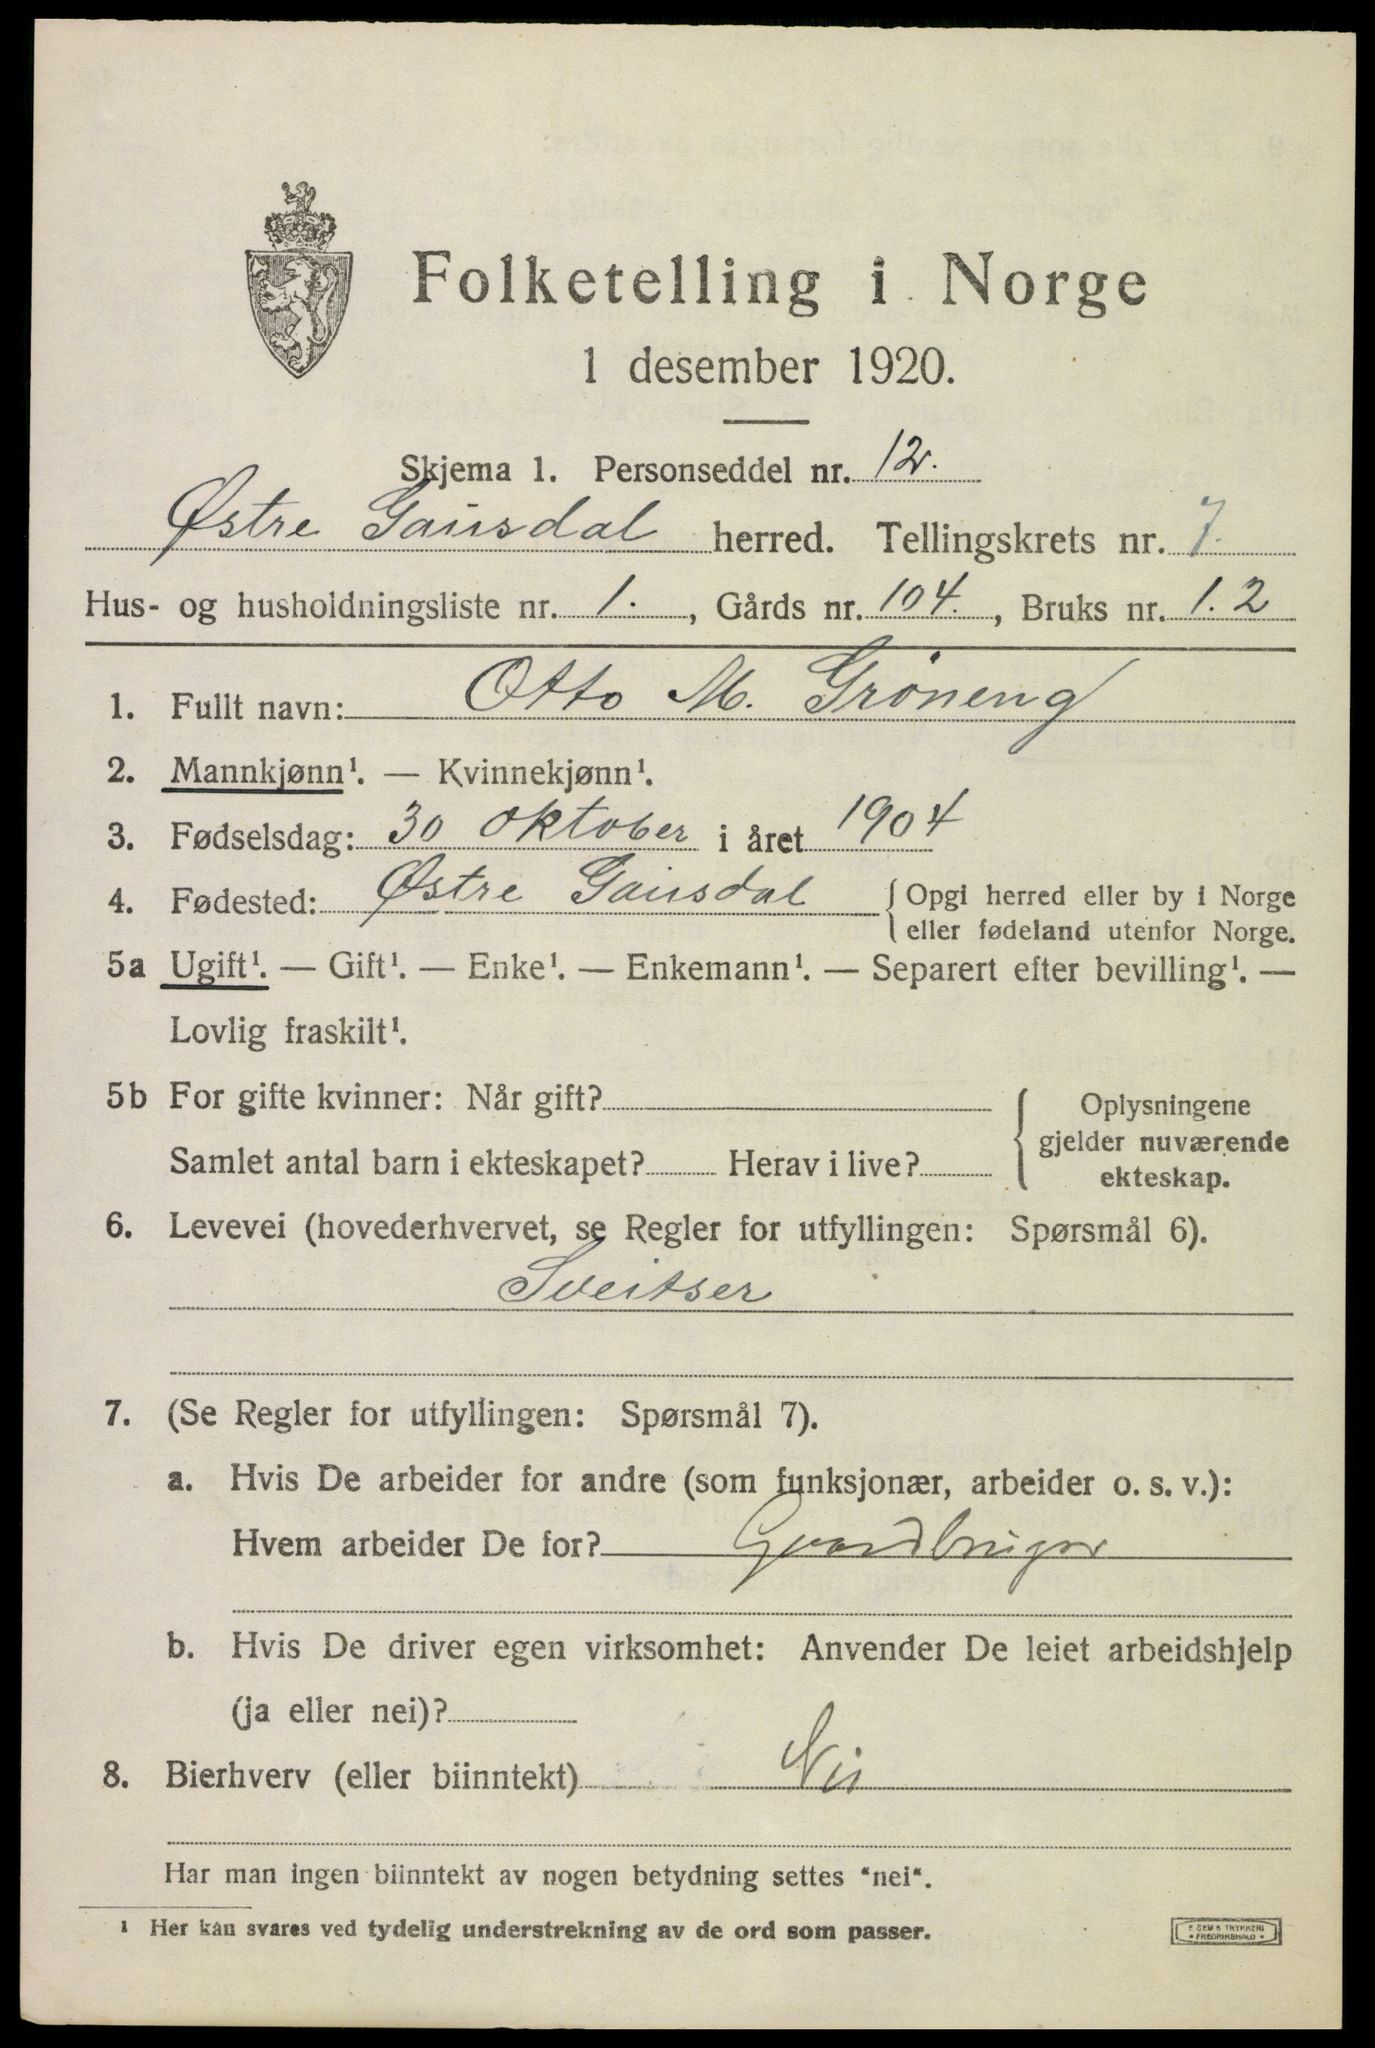 Folketelling i Norge
1 desember 1920.
Skjema 1. Personseddel nr. 12.
Østre Gausdal herred. Tellingskrets nr. 7.
Hus- og husholdningsliste nr. 1., Gårds nr. 104., Bruks nr. 1.2
1. Fullt navn: Otto M. Gröneng
2. Mannkjønn¹. — Kvinnekjønn¹.
3. Fødselsdag: 30 oktober i året 1904
4. Fødested: Østre Gausdal { Opgi herred eller by i Norge
eller fødeland utenfor Norge.
5a Ugift¹. — Gift¹. — Enke¹. — Enkemann¹. — Separert efter bevilling¹. —
Lovlig fraskilt¹.
5b For gifte kvinner: Når gift? { Oplysningene
gjelder nuværende
ekteskap.
Samlet antal barn i ekteskapet? Herav i live?
6. Levevei (hovederhvervet, se Regler for utfyllingen: Spørsmål 6).
Sveitser
7. (Se Regler for utfyllingen: Spørsmål 7).
a. Hvis De arbeider for andre (som funksjonær, arbeider o. s. v.):
Hvem arbeider De for? Gaardbruger
b. Hvis De driver egen virksomhet: Anvender De leiet arbeidshjelp
(ja eller nei)?
8. Bierhverv (eller biinntekt) Nei
Har man ingen biinntekt av nogen betydning settes "nei".
¹ Her kan svares ved tydelig understrekning av de ord som passer.
E SEMS TRYKKERI
FREDRIKSHALD